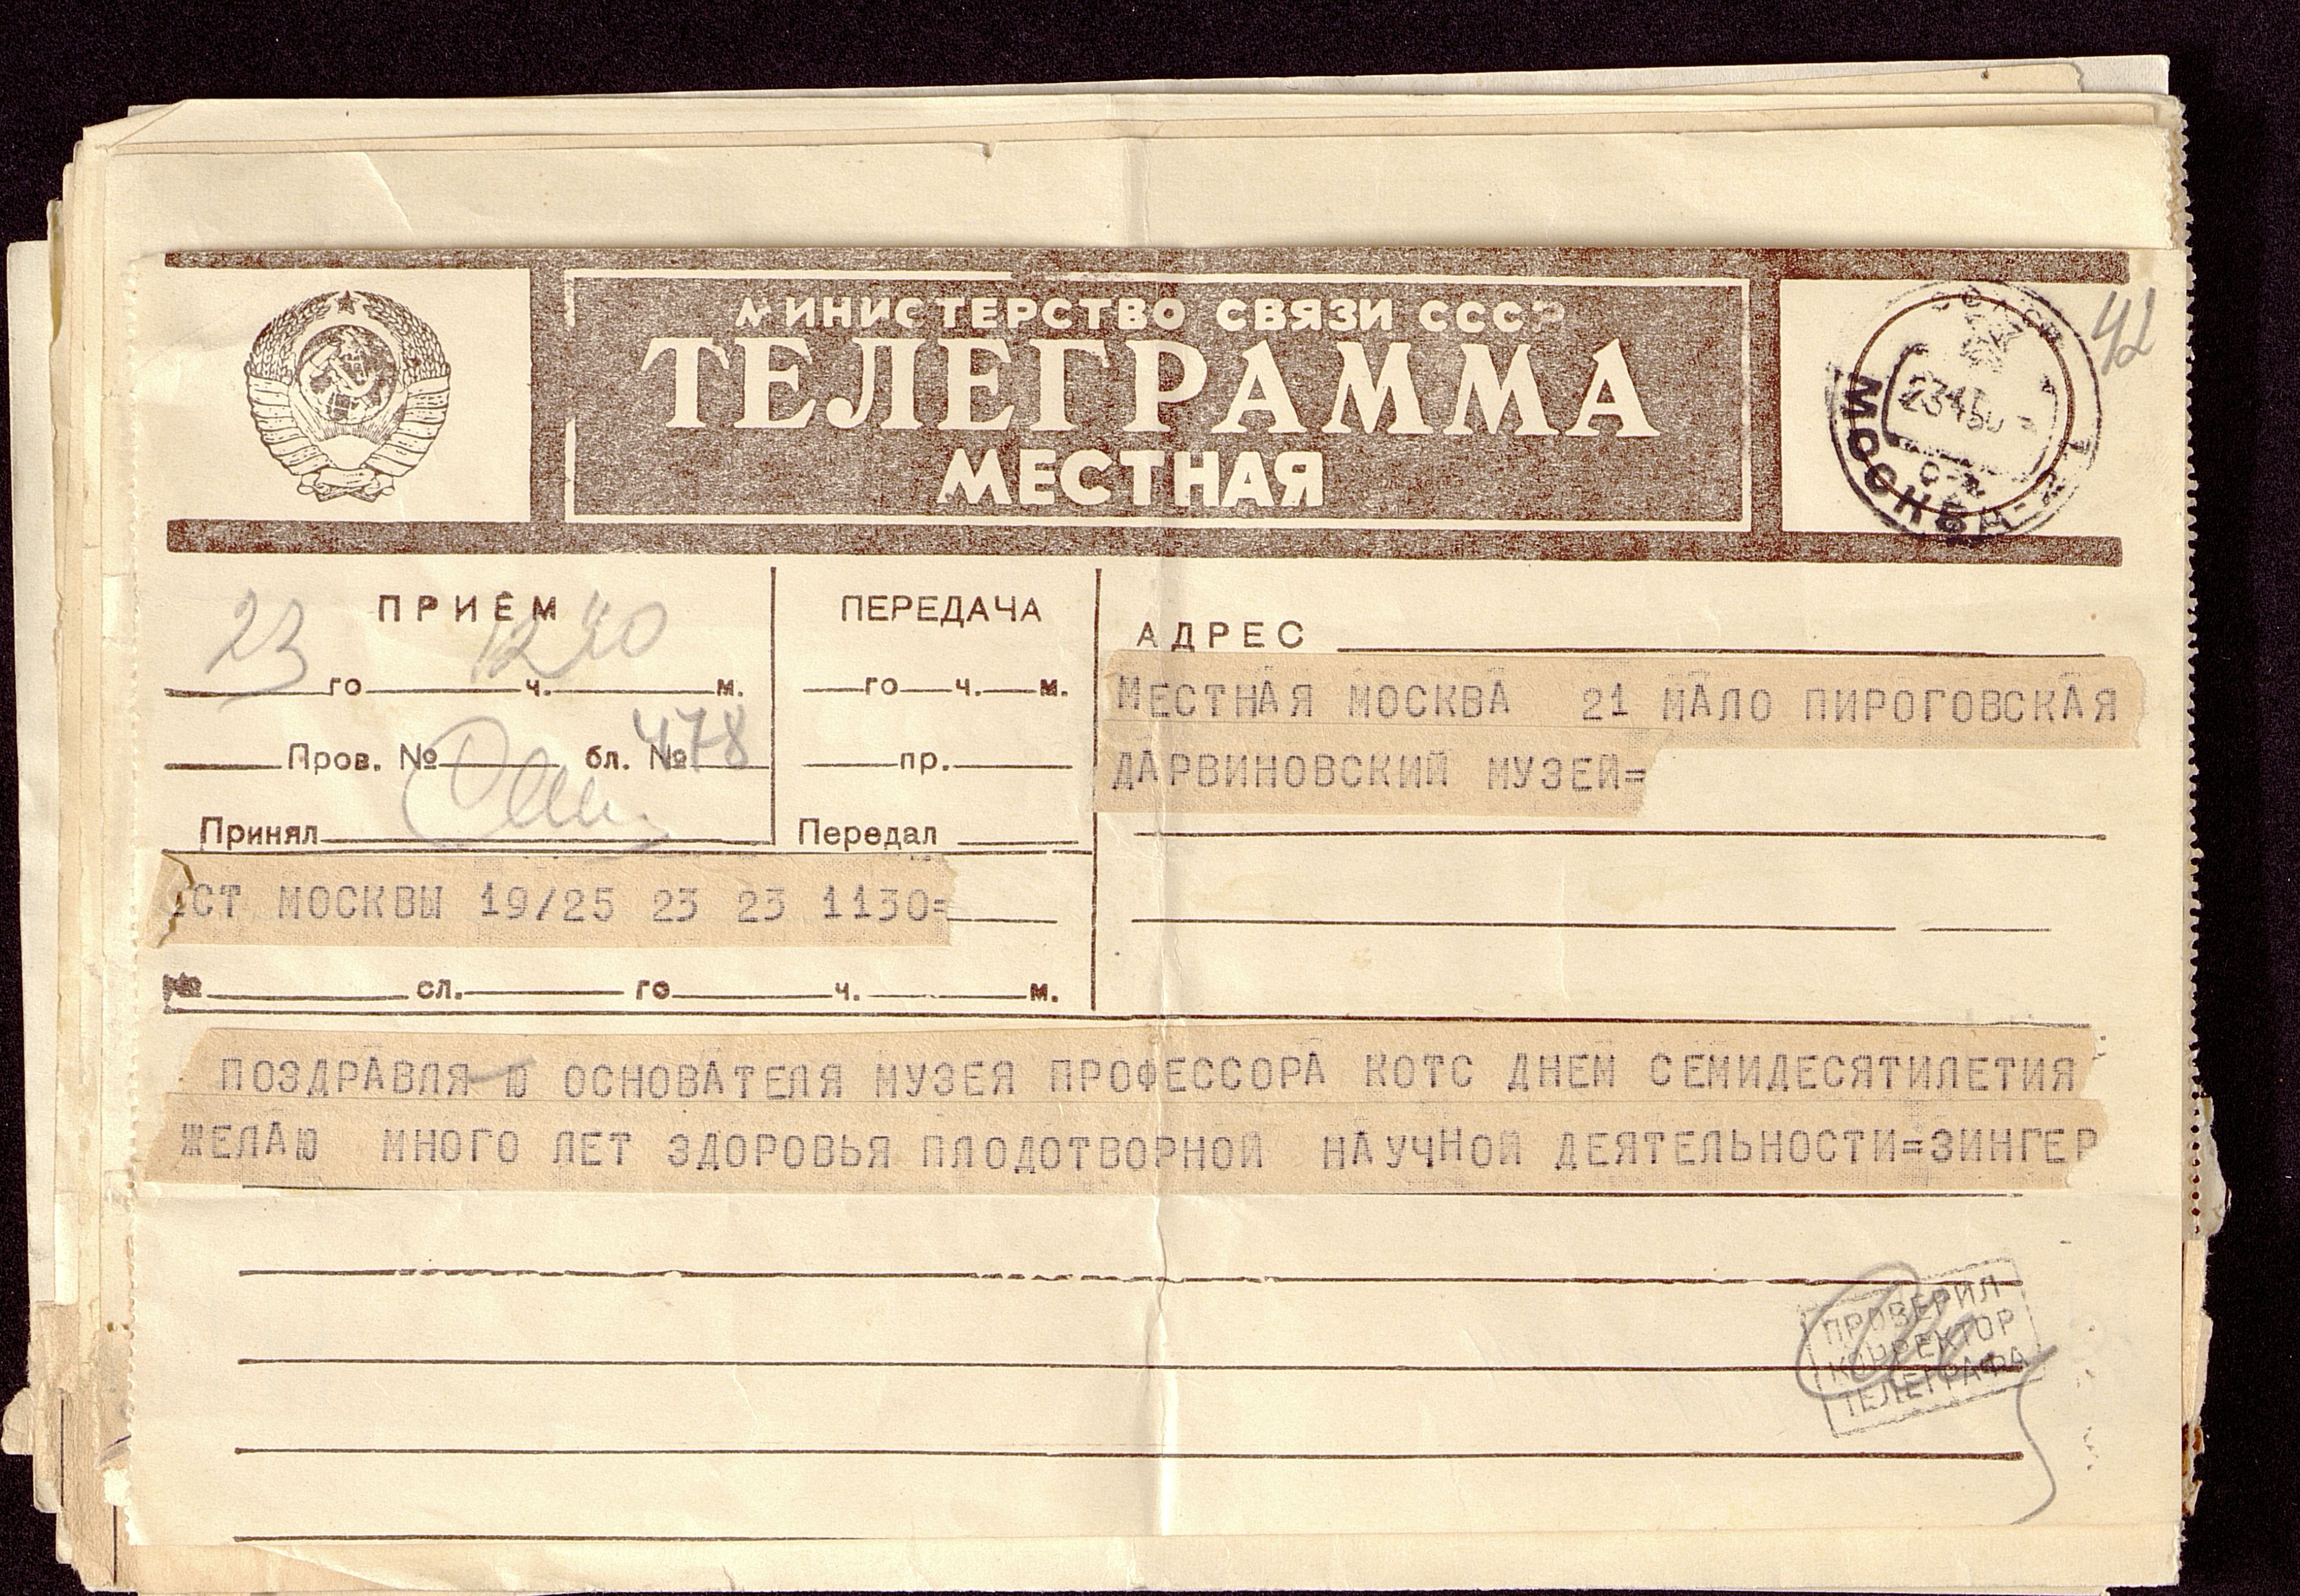 МИНИСТЕРСТВО СВЯЗИ СССР
ТЕЛЕГРАММА
МЕСТНАЯ
42
23450
МОСКВА
ПРИЕМ
23 го 12 ч. 40 м.
Пров. № бл. № 478
Принял
ПЕРЕДАЧА
го ч. м.
пр.
Передал
АДРЕС
МЕСТНАЯ МОСКВА 21 МАЛО ПИРОГОВСКАЯ
ДАРВИНОВСКИЙ МУЗЕЙ=
СТ МОСКВЫ 19/25 23 23 1130=
№ сл. го ч. м.
ПОЗДРАВЛЯ Ю ОСНОВАТЕЛЯ МУЗЕЯ ПРОФЕССОРА КОТС ДНЕМ СЕМИДЕСЯТИЛЕТИЯ
ЖЕЛАЮ МНОГО ЛЕТ ЗДОРОВЬЯ ПЛОДОТВОРНОЙ НАУЧНОЙ ДЕЯТЕЛЬНОСТИ=ЗИНГЕР
ПРОВЕРИЛ
КОРРЕКТОР
ТЕЛЕГРАФА